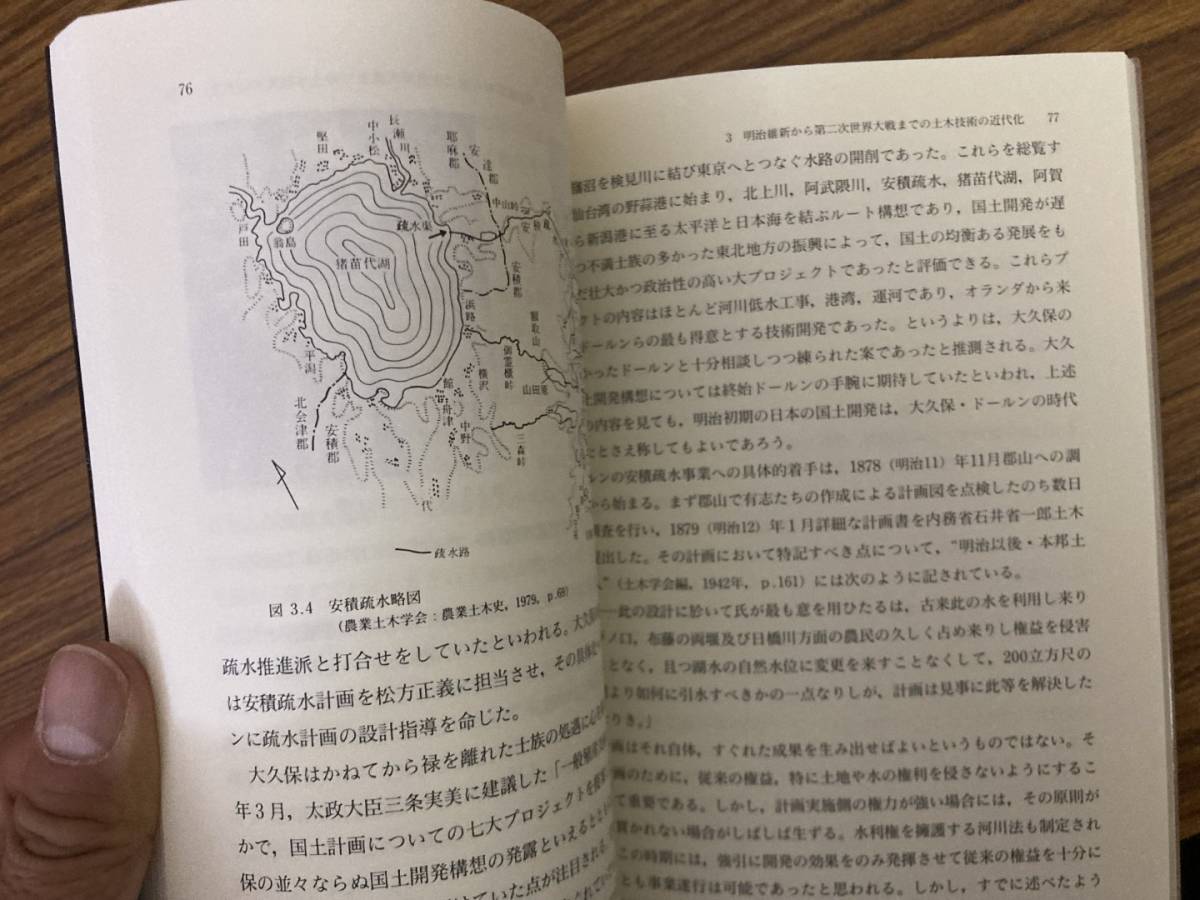 76
長瀬川
中小松
堅田
耶麻郡
安達郡
中山峠
戸田
翁島
疏水渠
猪苗代湖
安積郡
浜路
額取山
御霊櫃峠
横沢
山田原
平潟
館
舟津
中野
三森峠
北会津郡
安積郡
代
疏水路
図 3.4 安積疏水略図
(農業土木学会:農業土木史,1979,p.69)
疏水推進派と打合せをしていたといわれる。大久保
は安積疏水計画を松方正義に担当させ,その具体
ンに疏水計画の設計指導を命じた。
大久保はかねてから禄を離れた士族の処遇に心を
年3月,太政大臣三条実美に建議した「一般殖産
かで,国土計画についての七大プロジェクトを
保の並々ならぬ国土開発構想の発露といえると
ていた点が注目される。
3 明治維新から第二次世界大戦までの土木技術の近代化 77
沼を検見川に結び東京へとつなぐ水路の開削であった。これらを総覧す
仙台湾の野蒜港に始まり,北上川,阿武隈川,安積疏水,猪苗代湖,阿賀
ら新潟港に至る太平洋と日本海を結ぶルート構想であり,国土開発が遅
つ不満士族の多かった東北地方の振興によって,国土の均衡ある発展をも
だ壮大かつ政治性の高い大プロジェクトであったと評価できる。これらプ
クトの内容はほとんど河川低水工事,港湾,運河であり,オランダから来
ドールンらの最も得意とする技術開発であった。というよりは,大久保の
かったドールンと十分相談しつつ練られた案であったと推測される。大久
土開発構想については終始ドールンの手腕に期待していたといわれ,上述
の内容を見ても,明治初期の日本の国土開発は,大久保・ドールンの時代
たとさえ称してもよいであろう。
ルンの安積疏水事業への具体的着手は,1878(明治11)年11月郡山への調
から始まる。まず郡山で有志たちの作成による計画図を点検したのち数日
査を行い,1879(明治12)年1月詳細な計画書を内務省石井省一郎土木
提出した。その計画において特記すべき点について,“明治以後・本邦土
”(土木学会編,1942年,p.161)には次のように記されている。
―此の設計に於いて氏が最も意を用ひたるは,古来此の水を利用し来り
ノロ,布藤の両堰及び日橋川方面の農民の久しく占め来りし権益を侵害
ことなく,且つ湖水の自然水位に変更を来すことなくして,200立方尺の
より如何に引水すべきかの一点なりしが,計画は見事に此等を解決した
りき。」
画はそれ自体,すぐれた成果を生み出せばよいというものではない。そ
画のために,従来の権益,特に土地や水の権利を侵さないようにするこ
て重要である。しかし,計画実施側の権力が強い場合には,その原則が
貫かれない場合がしばしば生ずる。水利権を擁護する河川法も制定され
この時期には,強引に開発の効果をのみ発揮させて従来の権益を十分に
とも事業遂行は可能であったと思われる。しかし,すでに述べたよう